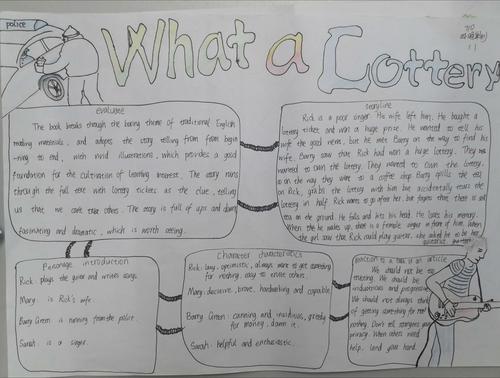 police
What a Lottery
evaluate
The book breaks through the boring theme of traditional English
reading materials, and adopts the story telling from from begin
-ning to end, with vivid illustrations, which provides a good
foundation for the cultivation of learning interest. The story runs
through the full text with lottery tickets as the clue, telling
us that we can't others. The story is full of ups and downs
fascinating and dramatic, which is worth
storyline
Rick is a poor singer. His wife left him. He bought a
lottery ticket and win a huge prize. He wanted to tell his
wife the good news, but he met Barry on the way to find his
wife. Barry saw that Rick had won a huge lottery. They
wanted to own the lottery. They wanted to own the lottery.
so on the way they went to a coffee shop Barry spills the tea
on Rick, grabs the lottery with him but accidentally tears the
lottery in half. Rick wants to go after her, but forgets that there is still
tea on the ground. He falls and hits his head. He loses his memory.
When the he wakes up, there is a female singer in front of him. When
the girl saw that Rick could play guitar, she asked him to be her
guitarist
Personage introduction
Rick: plays the guitar and writes songs.
Mary: is Rick's wife.
Barry Green: is running from the police.
Sarah: is a singer.
Character characteristics
Rick: lazy, optimistic, always want to get something
for nothing, easy to others.
Mary: decisive, brave, hardworking and capable.
Barry Green: cunning and insidious, greedy
for money,
Sarah: helpful and enthusiastic.
reaction to a book or an article
We should not be too
trusting. We should be
industrious and progressive
We should not always think
of getting something for
nothing. Don't tell strangers your
privacy. When others need
help, lend your hand.